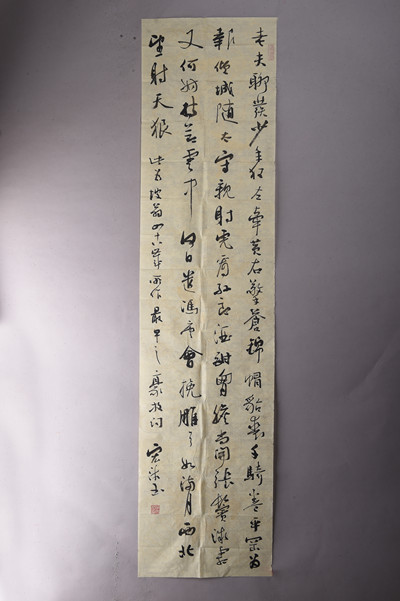 老夫聊發少年狂左牽黃右擎蒼錦帽貂裘千騎卷平岡為
報傾城隨太守親射虎看孫郎酒酣胸膽尚開張鬢微霜
又何妨持節雲中何日遣馮唐會挽雕弓如滿月西北
望射天狼 此為坡翁四十歲所作最早之豪放詞 宏 書